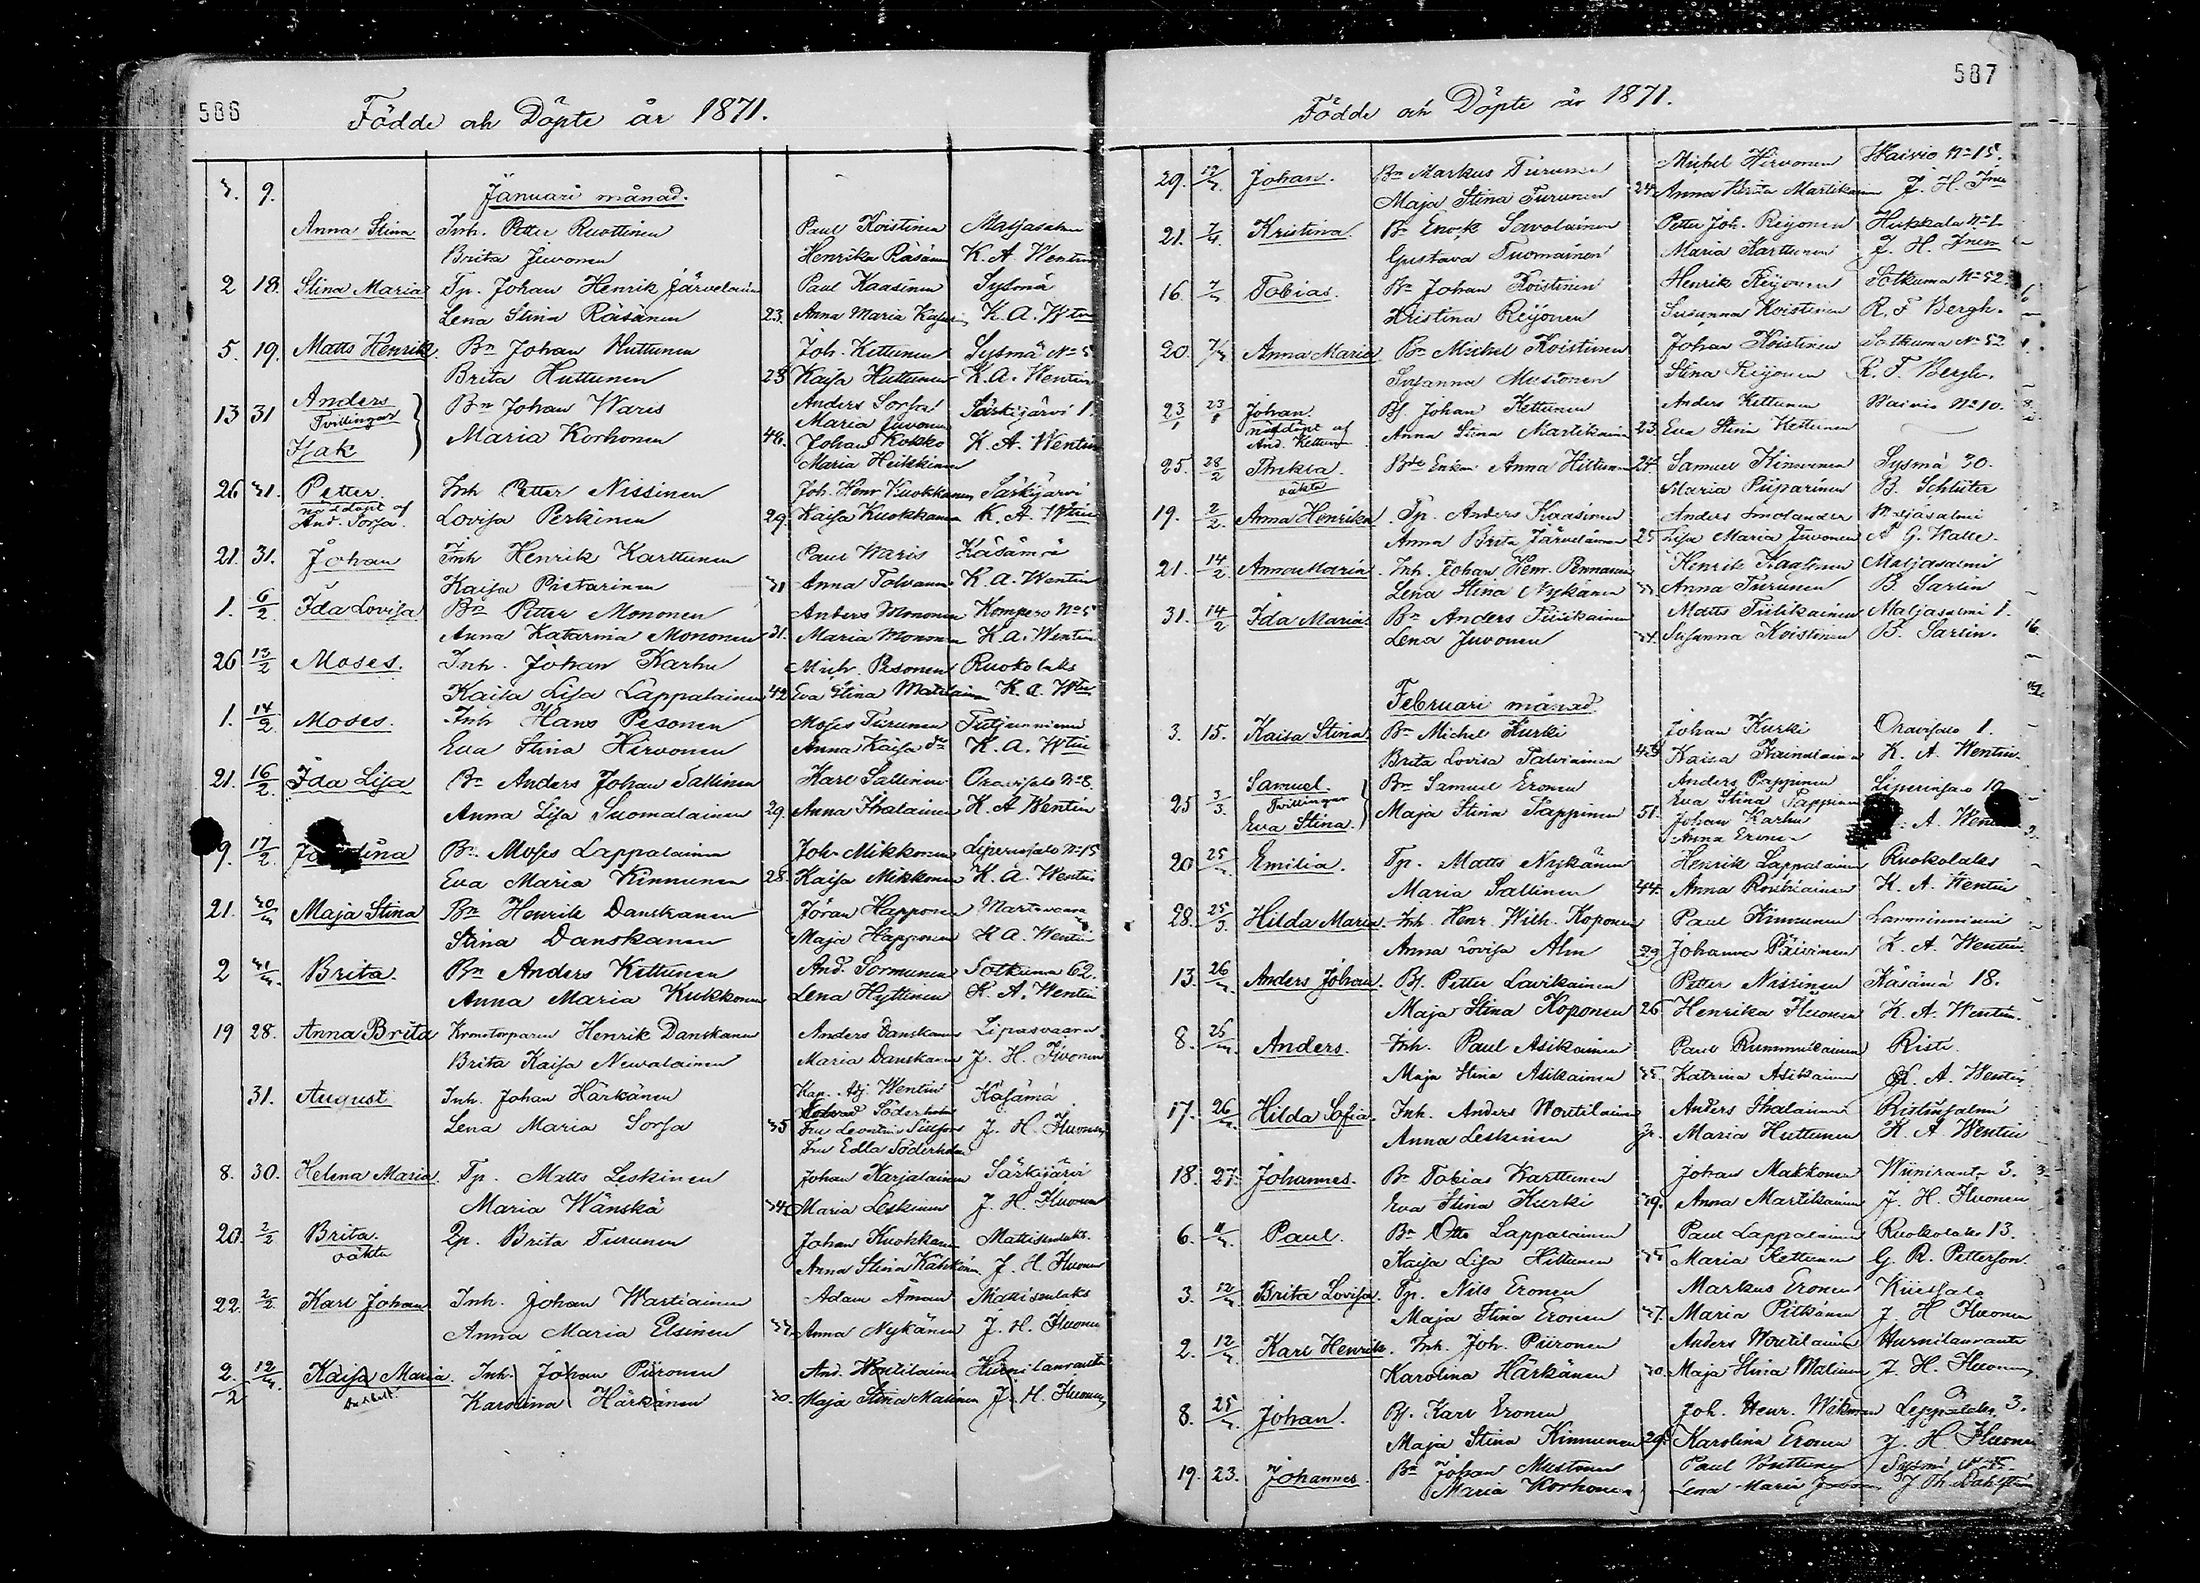 586
Födde och Döpte år 1871.
9. Januari månad.
Anna Stina Inh. Petter Ruottinen Paul Koistinen
Brita Juvonen Henrika Räsänen K. A. Wentin
2 18. Stina Maria Tp. Johan Henrik Järvelainen Paul Kaasinen Sysmä
Lena Stina Räsänen 23. Anna Maria K. A. Wtin
5. 19. Matts Henrik Bn Johan Huttunen Joh. Kettunen Sysmä No 5
Brita Huttunen 25 Kaisa Huttunen K. A. Wentin
13 31 Anders Bn Johan Waris Anders Sorsa Särkijärvi 1.
Tvillingar Maria Juvonen
Isak Maria Korhonen 46. Johan Kokko K. A. Wentin
Maria Heikkinen
26 31. Petter Inh Petter Nissinen Joh. Henr Kuokkanen Särkijärvi
nöddöpt af
And. Sorsa. Lovisa Perkinen 29. Kaisa Kuokkanen K. A. Wtin
21. 31. Johan Inh Henrik Karttunen Paul Waris Käsämä
Kaisa Pietarinen 31 Anna Tolvanen K. A. Wentin
1. 6/2 Ida Lovisa Bn Petter Mononen Anders Mononen Kompero No 5
Anna Katarina Mononen 31. Maria Mononen K. A. Wentin
26 13/2 Moses. Inh. Johan Karhu Mich. Pesonen Ruokolaks
Kaisa Lisa Lappalainen 42 Eva Stina K. A. Wtin
1. 14/2 Moses. Inh Hans Pesonen Moses Turunen
Eva Stina Hirvonen Anna Kaisa K. A. Wtin
21. 16/2 Ida Lisa Bn Anders Johan Sallinen Karl Sallinen Oravisalo No 8.
Anna Lisa Suomalainen 29. Anna Ihalainen K. A. Wentin
9. 17/2 Bn Moses Lappalainen Joh. Mikkonen Liperinsalo No 15
Eva Maria Kinnunen 28. Kaisa Mikkonen K. A. Wentin
21. Maja Stina Bn Henrik Danskanen Jöran Happonen Martovaara
Stina Danskanen Maja Happonen K. A. Wentin
2 Brita. Bn Anders Kettunen And. Sormunen Sotkuma 62.
Anna Maria Kukkonen Lena Hyttinen K. A. Wentin
19 28. Anna Brita Kronotorparen Henrik Danskanen Anders Danskanen Lipasvaara
Brita Kaisa Nevalainen Maria Danskanen J. H. Iivonen
31. August Inh. Johan Härkänen Kap. Adj. Wentin Käsämä
Söderholm
Lena Maria Sorsa 35 Fru J. H. Iivonen
Fru Edla Söderholm
8. 30. Helena Maria. Tp. Matts Leskinen Johan Karjalainen Särkijärvi
Maria Wänskä 34 Maria Leskinen J. H. Iivonen
20. 2/2 Brita Brita Turunen Johan Kuokkanen Mattisenlaks
oäkta Anna Stina Kähkönen J. H. Iivonen
22. 2/2 Karl Johan Inh. Johan Wartiainen Adam Åman Mattisenlaks
Anna Maria Elsinen Anna Nykänen J. H. Iivonen
2/2 Kaisa Maria. Inh. Johan Piironen And. Woutilainen Hurnilanranta
Karolina Härkänen 30. Maja Stina Malinen J. H. Iivonen
587
Födde och Döpte år 1871.
29. Johan. Bn Markus Turunen Michel Hirvonen Waivio No 15.
Maja Stina Turunen 24. Anna Brita Martikainen J. H. Iven
21. Kristina. Bn Enok Savolainen Petter Joh. Reijonen Hukkala No 1
Gustava Tuomainen Maria Karttunen J. H. Iven
16. Tobias. Bn Johan Koistinen Henrik Reijonen Sotkuma No 52
Kristina Reijonen Susanna Koistinen R. F. Bergh.
20. Anna Maria Bn Michel Koistinen Johan Koistinen Sotkuma No 52
Susanna Mustonen Stina Reijonen R. F. Bergh.
23/1 Johan. Bs. Johan Kettunen Anders Kettunen Waivio No 10.
nöddöpt af
And. Kettunen Anna Stina Martikainen 23. Eva Stina Kettunen
25. 28/2 Thekla. Enkan Anna Hiltunen Samuel Kinnunen Sysmä 30.
oäkta Maria Piiparinen B. Schlüter
19. 2/2. Anna Henrika Tp. Anders Kaasinen Anders Smolander
Anna Brita Järvelainen 25 Lisa Maria Juvonen A. G. Walle.
21. 14/2 Anna Maria. Inh. Johan Henr. Pennanen Henrik Kaasinen Maljasalmi
Lena Stina Nykänen Anna Turunen B. Sarlin
31. 14/2 Ida Maria. Bn Anders Tiilikainen Matts Tiilikainen Maljasalmi 1.
Lena Juvonen Susanna Koistinen B. Sarlin.
Februari månad
3. 15. Kaisa Stina Bn Michel Kurki Johan Kurki Oravisalo 1.
Brita Lovisa Talviainen Kaisa K. A. Wentin.
Samuel. Bn Samuel Eronen Anders Pappinen Liperinsalo 10
25 3/3. Tvillingar Eva Stina Pappinen
Eva Stina. Maja Stina Pappinen 51. Johan Karhu
Anna Eronen
20 Emilia. Tp. Matts Nykänen Henrik Lappalainen Ruokolaks
Maria Sallinen 44. Anna K. A. Wentin
28. Hilda Maria. Inh. Henr. Wilh. Koponen Paul Kinnunen Lamminniemi
Anna Lovisa Alm 39 Johanna Päivinen K. A. Wentin
13. Anders Johan. Bs. Petter Lavikainen Petter Nissinen Käsämä 18.
Maja Stina Koponen 26 Henrika Iivonen K. A. Wentin.
8. Anders. Inh. Paul Asikainen Paul Rummukainen Risti.
Maja Stina Asikainen 35. Katrina Asikainen K. A. Wentin
17. Hilda Sofia. Inh. Anders Woutilainen Anders Ihalainen Ristinsalmi
Anna Leskinen Maria Huttunen K. A. Wentin
18. 27. Johannes. Bn Tobias Karttunen Johan Makkonen Wiiniranta 3.
Eva Stina Kurki 39. Anna Martikainen J. H. Iivonen
6. Paul. Bn Otto Lappalainen Paul Lappalainen Ruokolaks 13.
Kaisa Lisa Hiltunen 35 Maria Kettunen G. R. Petterson.
3. Brita Lovisa. Tp. Nils Eronen Markus Eronen
Maja Stina Eronen 37. Maria Pitkänen J. H. Iivonen
2. Karl Henrik. Inh. Joh. Piironen Anders Woutilainen Hurnilanranta
Karolina Härkänen 30. Maja Stina Malinen J. H. Iivonen
8. Johan. Bs. Karl Eronen Joh. Henr. Wikman Leppälaks 3.
Maja Stina Kinnunen 29. Karolina Eronen J. H. Iivonen
19. 23. Johannes Bn Johan Mustonen Paul
Maria Korhonen Lena Maria